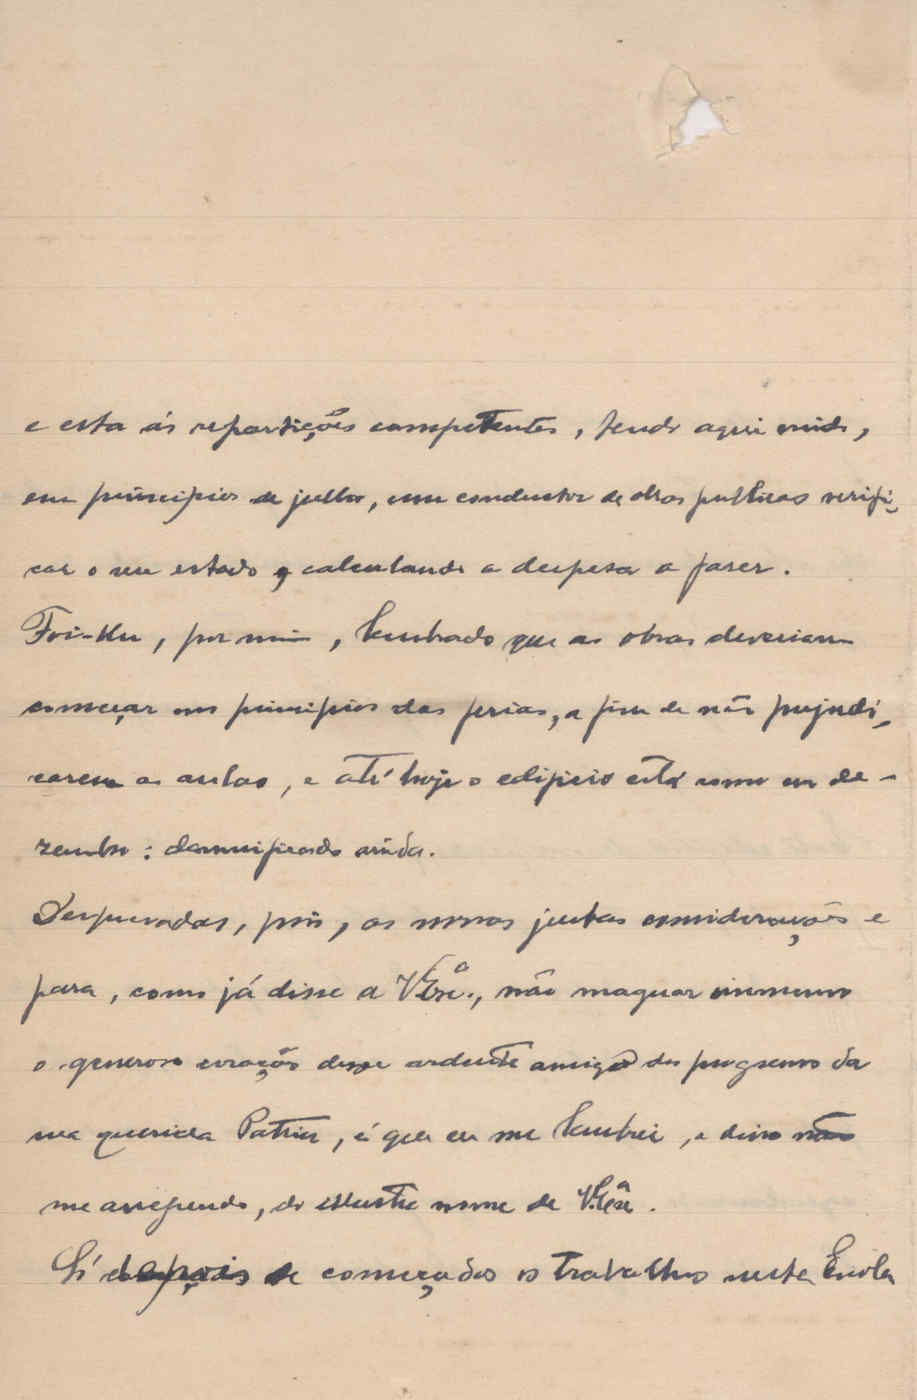 e esta ás repartições competentes, tendo aqui vindo,
em principios de julho, um conductor de obras publicas verifi-
car o seu estado, calculando a despesa a faser.
Foi-lhe, por mim, lembrado que as obras deveriam
começar nos principios das ferias, a fim de não prejudi-
carem as aulas, e até hoje o edificio está como em de-
zembro: damnificado ainda.
Despresadas, pois, as nossas justas considerações e
para, como já disse a V. Ex.ª, não maguar immenso
o generoso coração desse ardente amigo do progresso da
sua querida Patria, é que eu me lembrei, e disso não
me arrependo, do illustre nome de V. Ex.ª.
Só depois de começados os trabalhos nesta Escola